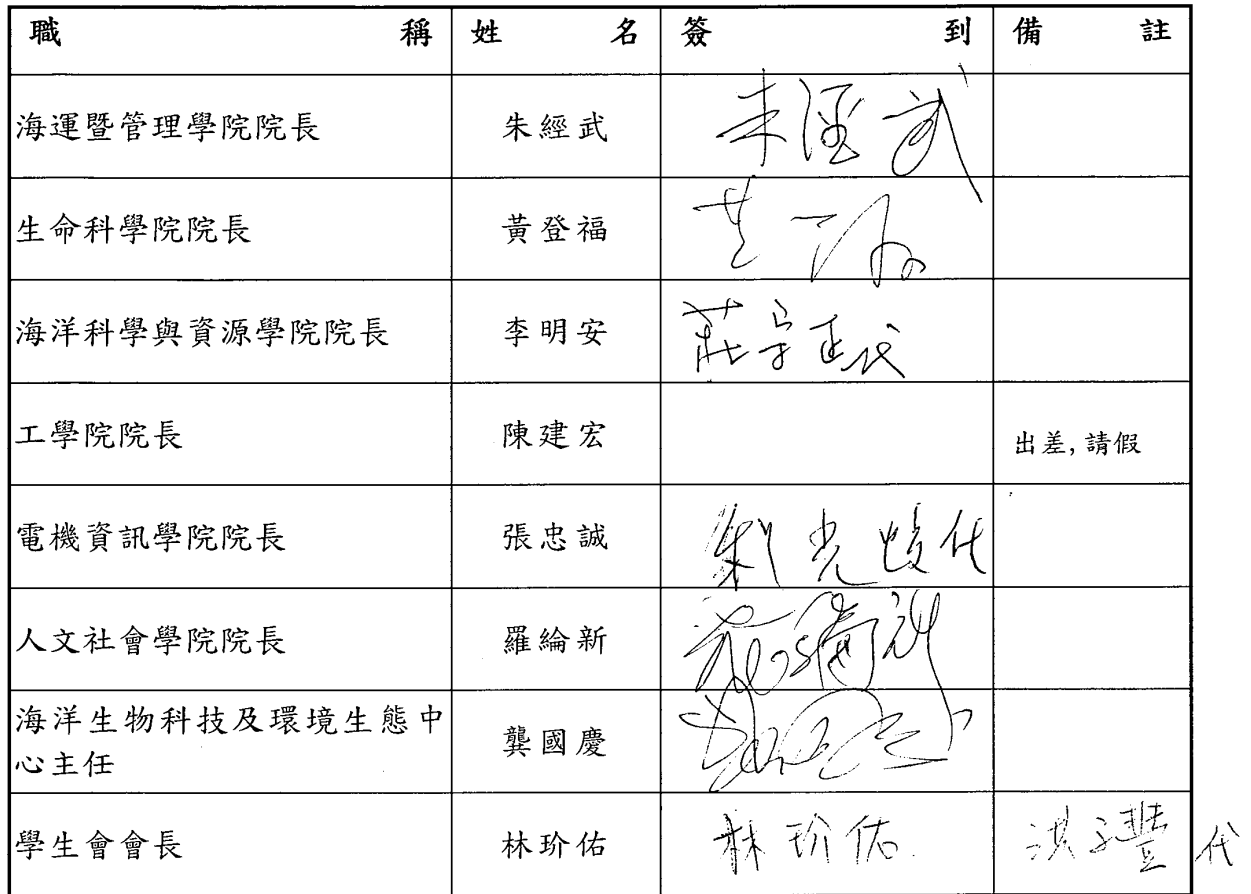 職稱 姓名 簽到 備註
海運暨管理學院院長 朱經武 朱經武
生命科學院院長 黃登福
海洋科學與資源學院院長 李明安 莊守正代
工學院院長 陳建宏 出差,請假
電機資訊學院院長 張忠誠 代
人文社會學院院長 羅綸新 羅綸新
海洋生物科技及環境生態中
心主任 龔國慶
學生會會長 林玠佑 林玠佑 洪子豐代